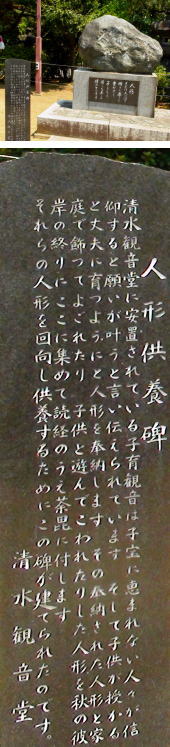 人形供養碑
清水観音堂に安置されている子育観音は子宝に恵まれない人々が信
仰すると願いが叶うと言い伝えられています　そして子供が授かる
と丈夫に育つようにと人形を奉納します　その奉納された人形と家
庭で飾ってよごれたり　子供と遊んでこわれたりした人形を秋の彼
岸の終りにここに集めて読経のうえ荼毘に付します
それらの人形を回向し供養するためにこの碑が建てられたのです。
清水観音堂